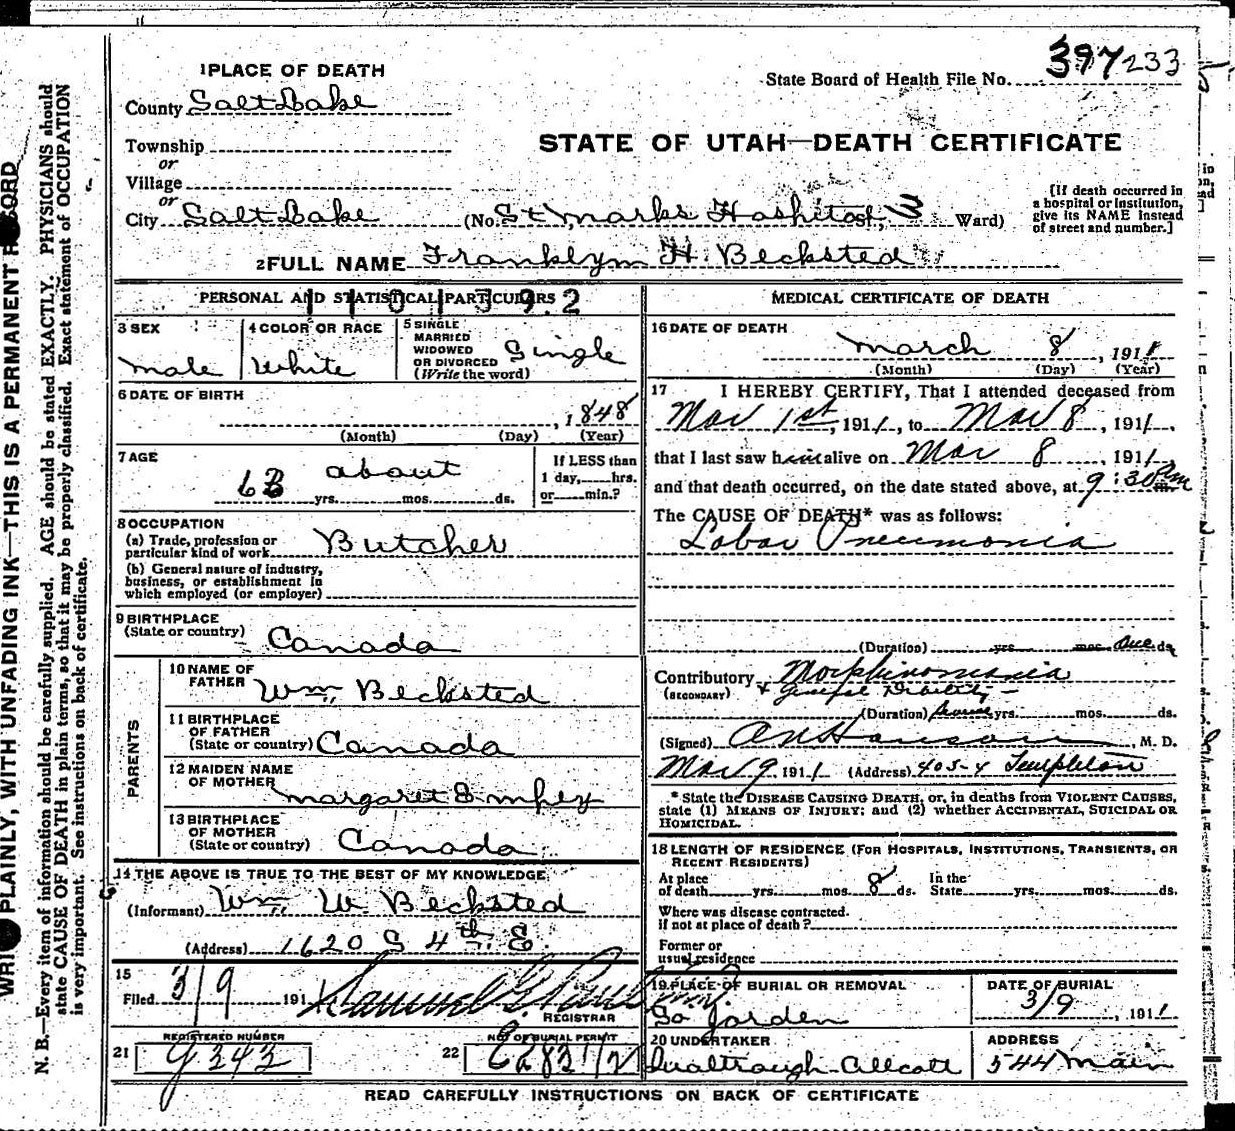 1 PLACE OF DEATH
State Board of Health File No. 397 233
County Salt Lake
STATE OF UTAH—DEATH CERTIFICATE
Township
or
Village
or
City Salt Lake (No. St. Marks Hospital St., 3 Ward)
[If death occurred in a hospital or institution, give its NAME instead of street and number.]
2 FULL NAME Franklyn H. Becksted
PERSONAL AND STATISTICAL PARTICULARS
1 1 0 1 3 9 2
3 SEX
male
4 COLOR OR RACE
White
5 SINGLE MARRIED WIDOWED OR DIVORCED (Write the word)
Single
6 DATE OF BIRTH
, 1848
(Month) (Day) (Year)
7 AGE
about
63 yrs. mos. ds.
If LESS than 1 day, hrs. or min.?
8 OCCUPATION
(a) Trade, profession or particular kind of work Butcher
(b) General nature of industry, business, or establishment in which employed (or employer)
9 BIRTHPLACE
(State or country) Canada
PARENTS
10 NAME OF FATHER Wm. Becksted
11 BIRTHPLACE OF FATHER
(State or country) Canada
12 MAIDEN NAME OF MOTHER Margaret
13 BIRTHPLACE OF MOTHER
(State or country) Canada
14 THE ABOVE IS TRUE TO THE BEST OF MY KNOWLEDGE
(Informant) Wm. W. Becksted
(Address) 1620 S 4th E.
15
Filed 3/9 191
REGISTRAR
REGISTERED NUMBER
21 343
NO. OF BURIAL PERMIT
22
MEDICAL CERTIFICATE OF DEATH
16 DATE OF DEATH
March 8, 1911
(Month) (Day) (Year)
17 I HEREBY CERTIFY, That I attended deceased from
Mar 1st, 1911, to Mar 8, 1911,
that I last saw him alive on Mar 8, 1911,
and that death occurred, on the date stated above, at 9:30 Pm
The CAUSE OF DEATH* was as follows:
Lobar Pneumonia
(Duration) yrs. mos. ds.
Contributory Morphinomania
(SECONDARY) + General Debility
(Duration) yrs. mos. ds.
(Signed) , M. D.
Mar 9 1911 (Address) 405-4 Templeton
* State the DISEASE CAUSING DEATH, or, in deaths from VIOLENT CAUSES, state (1) MEANS OF INJURY; and (2) whether ACCIDENTAL, SUICIDAL OR HOMICIDAL.
18 LENGTH OF RESIDENCE (FOR HOSPITALS, INSTITUTIONS, TRANSIENTS, OR RECENT RESIDENTS)
At place of death yrs. mos. 8 ds. In the State yrs. mos. ds.
Where was disease contracted, if not at place of death?
Former or usual residence
19 PLACE OF BURIAL OR REMOVAL
So Jorden
DATE OF BURIAL
3/9, 1911
20 UNDERTAKER
ADDRESS
544 Main
READ CAREFULLY INSTRUCTIONS ON BACK OF CERTIFICATE
WRITE PLAINLY, WITH UNFADING INK—THIS IS A PERMANENT RECORD
N. B.—Every item of information should be carefully supplied. AGE should be stated EXACTLY. PHYSICIANS should
state CAUSE OF DEATH in plain terms, so that it may be properly classified. Exact statement of OCCUPATION
is very important. See instructions on back of certificate.